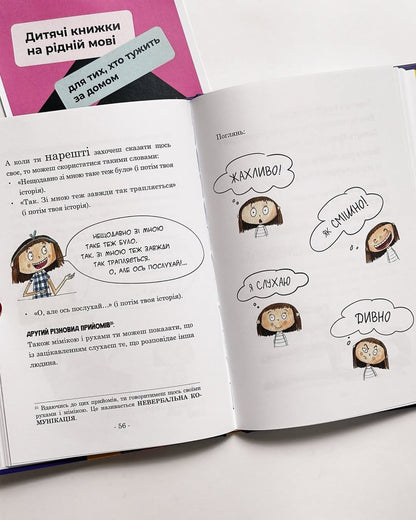 Дитячі книжки
на рідній мові
для тих, хто тужить
за домом
А коли ти нарешті захочеш сказати щось
своє, то можеш скористатися такими словами:
• «Нещодавно зі мною таке теж було» (і потім твоя
історія).
• «Так. Зі мною теж завжди так трапляється»
(і потім твоя історія).
НЕЩОДАВНО ЗІ МНОЮ
ТАКЕ ТЕЖ БУЛО.
ТАК, ЗІ МНОЮ ТЕЖ ЗАВЖДИ
ТАК ТРАПЛЯЄТЬСЯ.
О, АЛЕ ОСЬ ПОСЛУХАЙ!...
• «О, але ось послухай...» (і потім твоя історія).
ДРУГИЙ РІЗНОВИД ПРИЙОМІВ
Також мімікою і рухами ти можеш показати, що
із зацікавленням слухаєш те, що розповідає інша
людина.
Вдаючись до цих прийомів, ти говоритимеш щось своїми
рухами і мімікою. Це називається НЕВЕРБАЛЬНА КО-
МУНІКАЦІЯ.
- 56 -
Поглянь:
ЖАХЛИВО!
ЯК СМІШНО!
Я СЛУХАЮ
ДИВНО